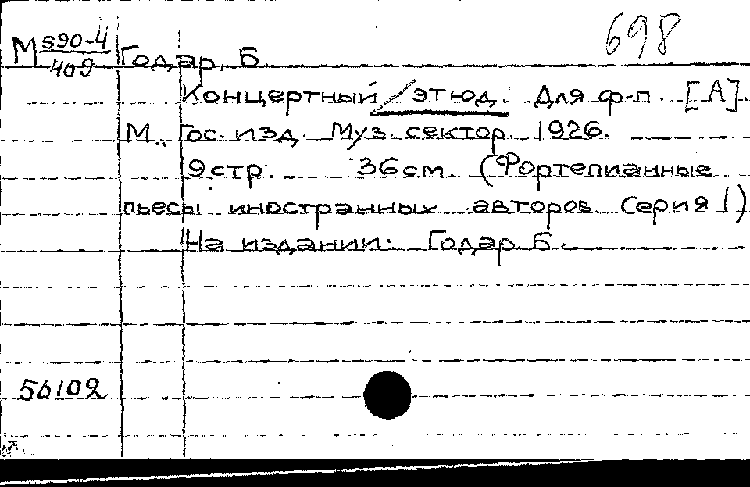 698
М 590-4/409 Годар, Б.
Концертный /этюд. Для ф-п. [А]
М., Гос. изд. Муз. сектор. 1926.
9 стр. 36 см. (Фортепианные
пьесы иностранных авторов. Серия I)
На издании: Годар Б.
56102